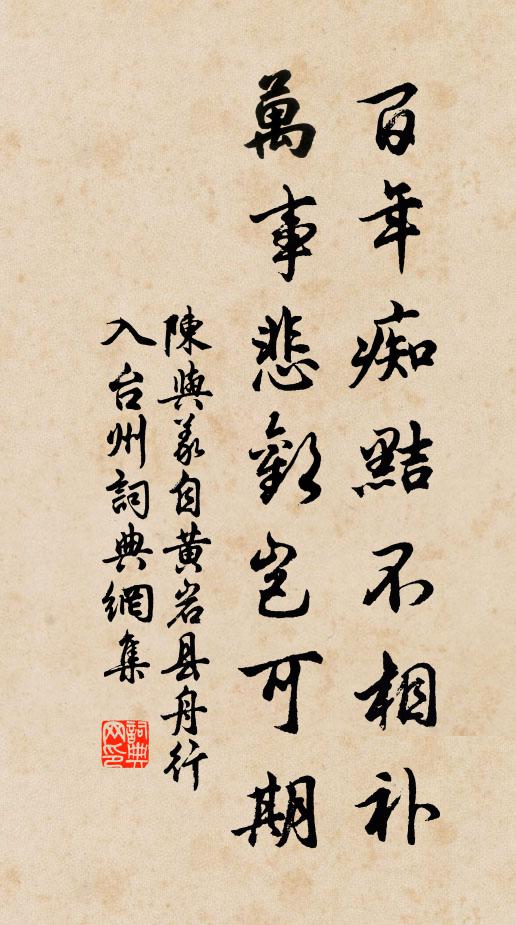 百年痴黠不相补
萬事悲歡豈可期
陳與義自黄岩县舟行
入台州詞典網集
詞典网印